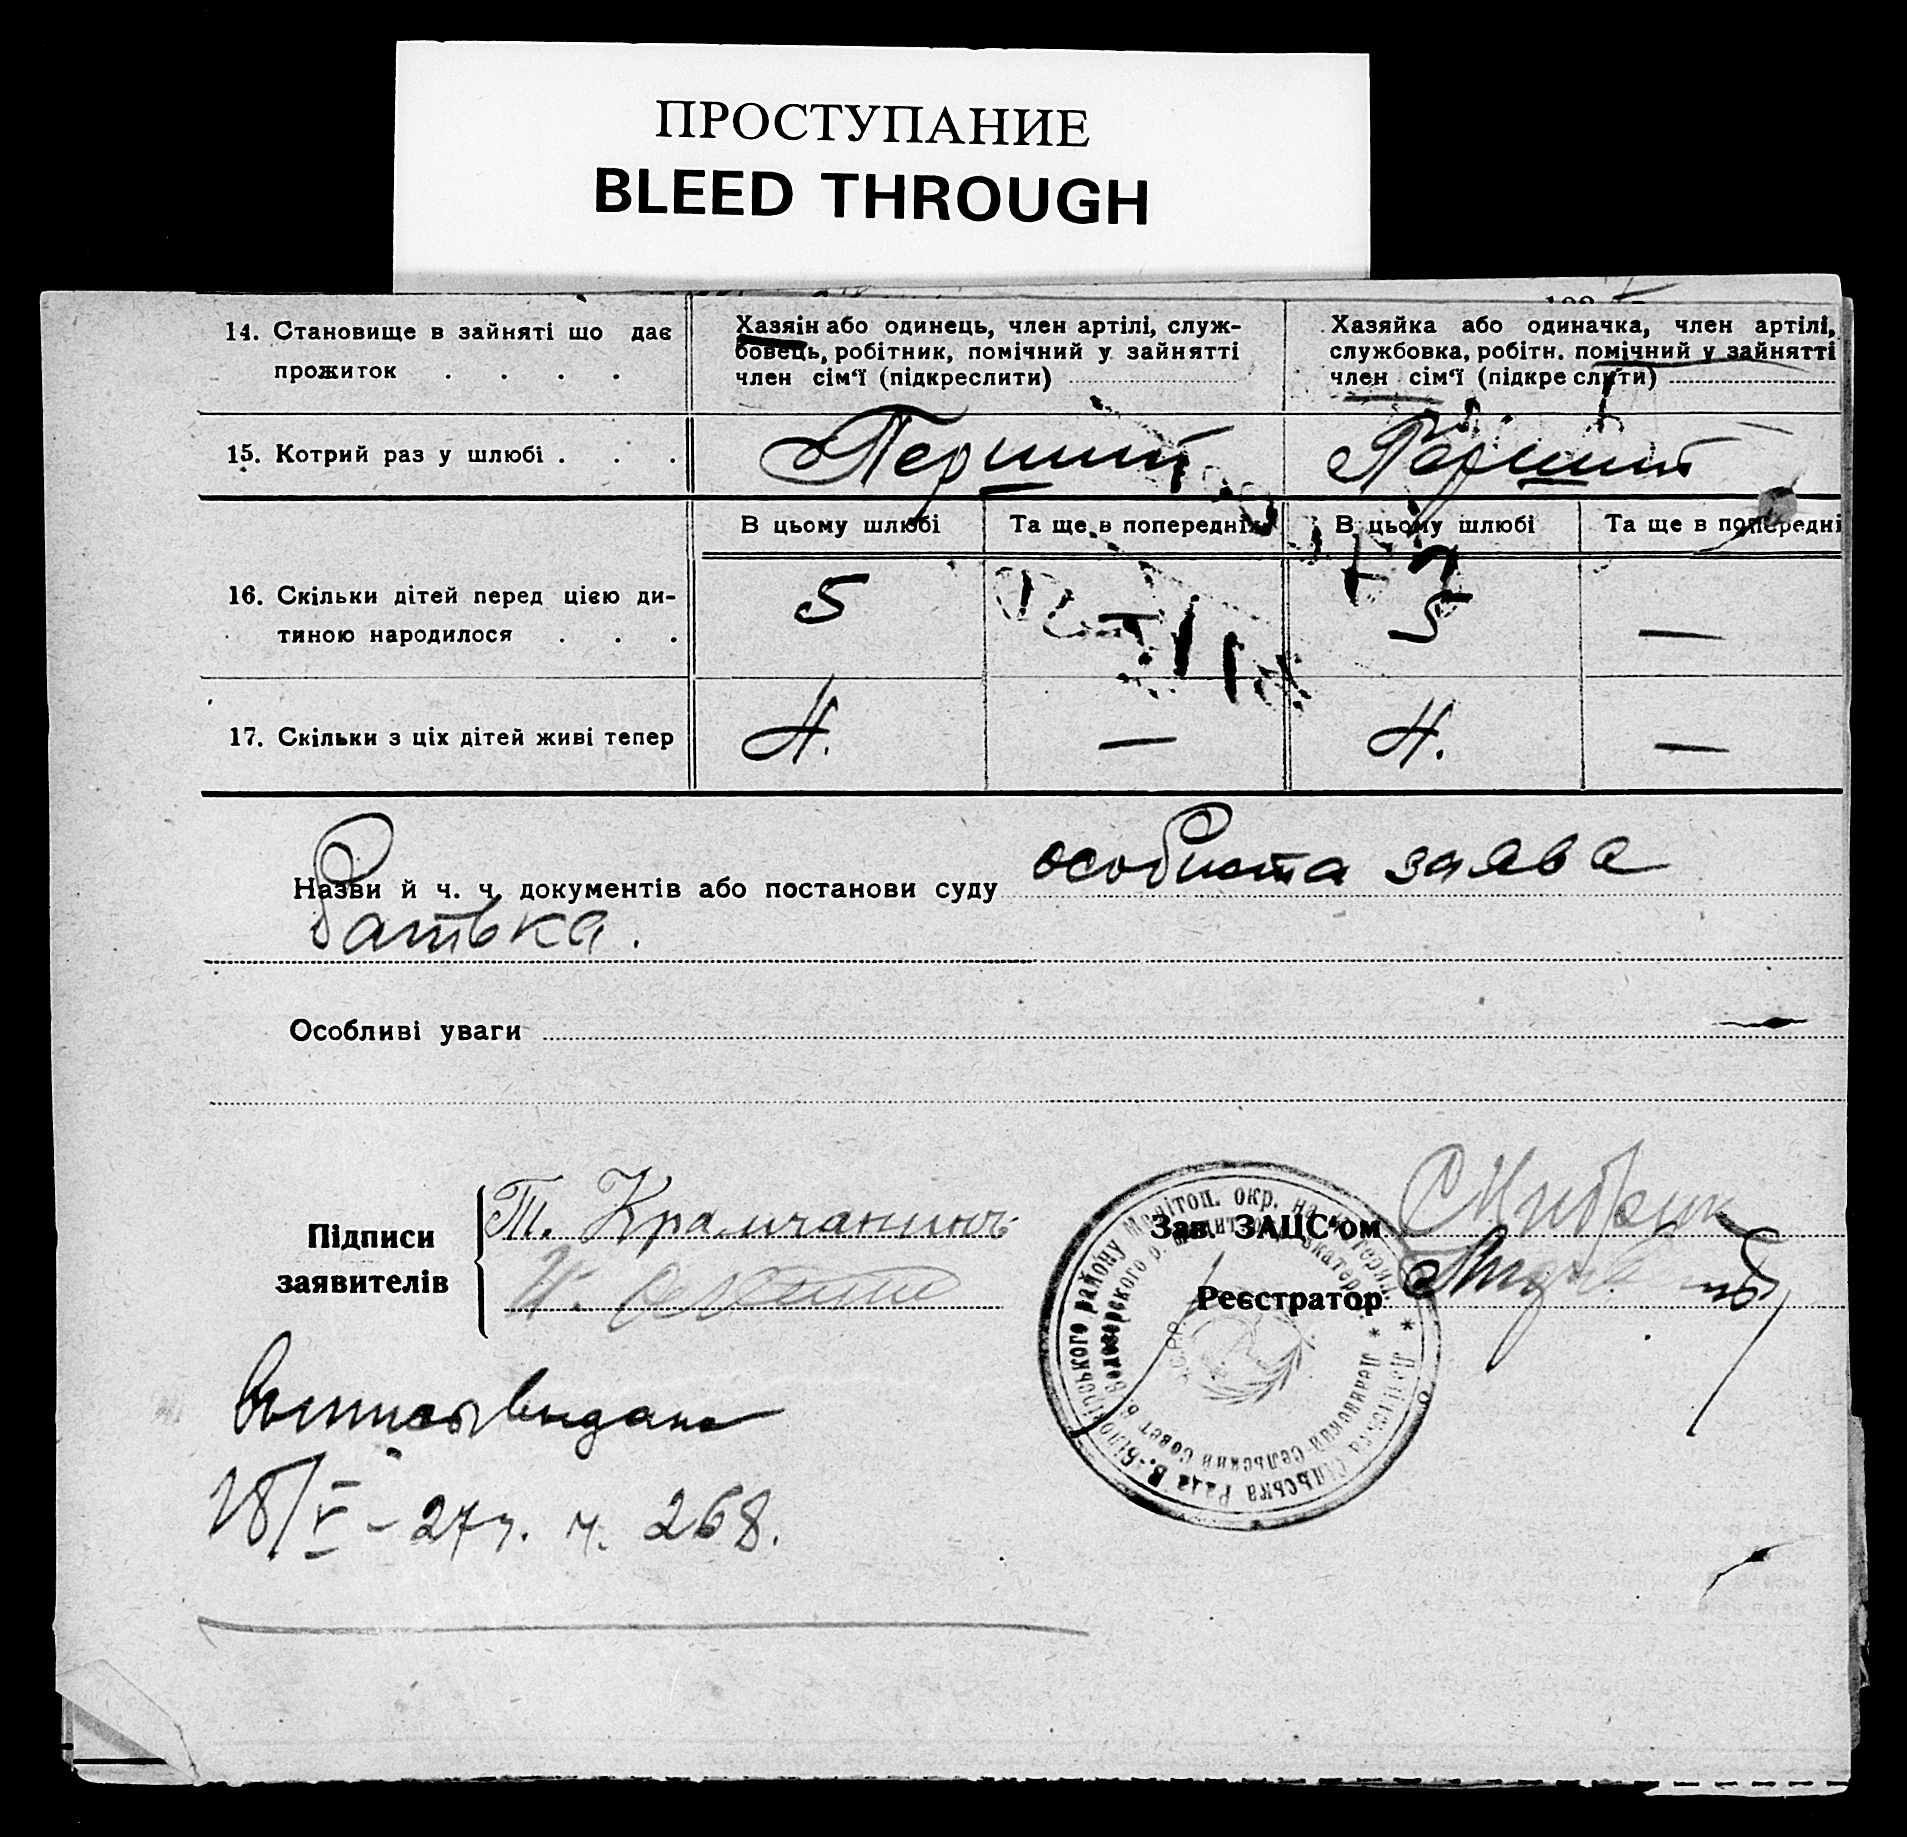 ПРОСТУПАНИЕ
BLEED THROUGH
14. Становище в зайняті що дає
прожиток . . . .
Хазяїн або одинець, член артілі, служ-
бовець, робітник, помічний у зайнятті
член сім'ї (підкреслити)
Хазяйка або одиначка, член артілі,
службовка, робітн. помічний у зайнятті
член сім'ї (підкреслити)
15. Котрий раз у шлюбі . . .
Перший
Перший
В цьому шлюбі
Та ще в попередніх
В цьому шлюбі
Та ще в попередні
16. Скільки дітей перед цією ди-
тиною народилося . . .
5
—
5
—
17. Скільки з ціх дітей живі тепер
4.
—
4.
—
Назви й ч. ч. документів або постанови суду особиста заява
батька.
Особливі уваги
Підписи
заявителів
Т. Крамчанинъ
Зав. ЗАЦС'ом
Реєстратор
выпись выдана
18/V – 27 г. ч. 268.